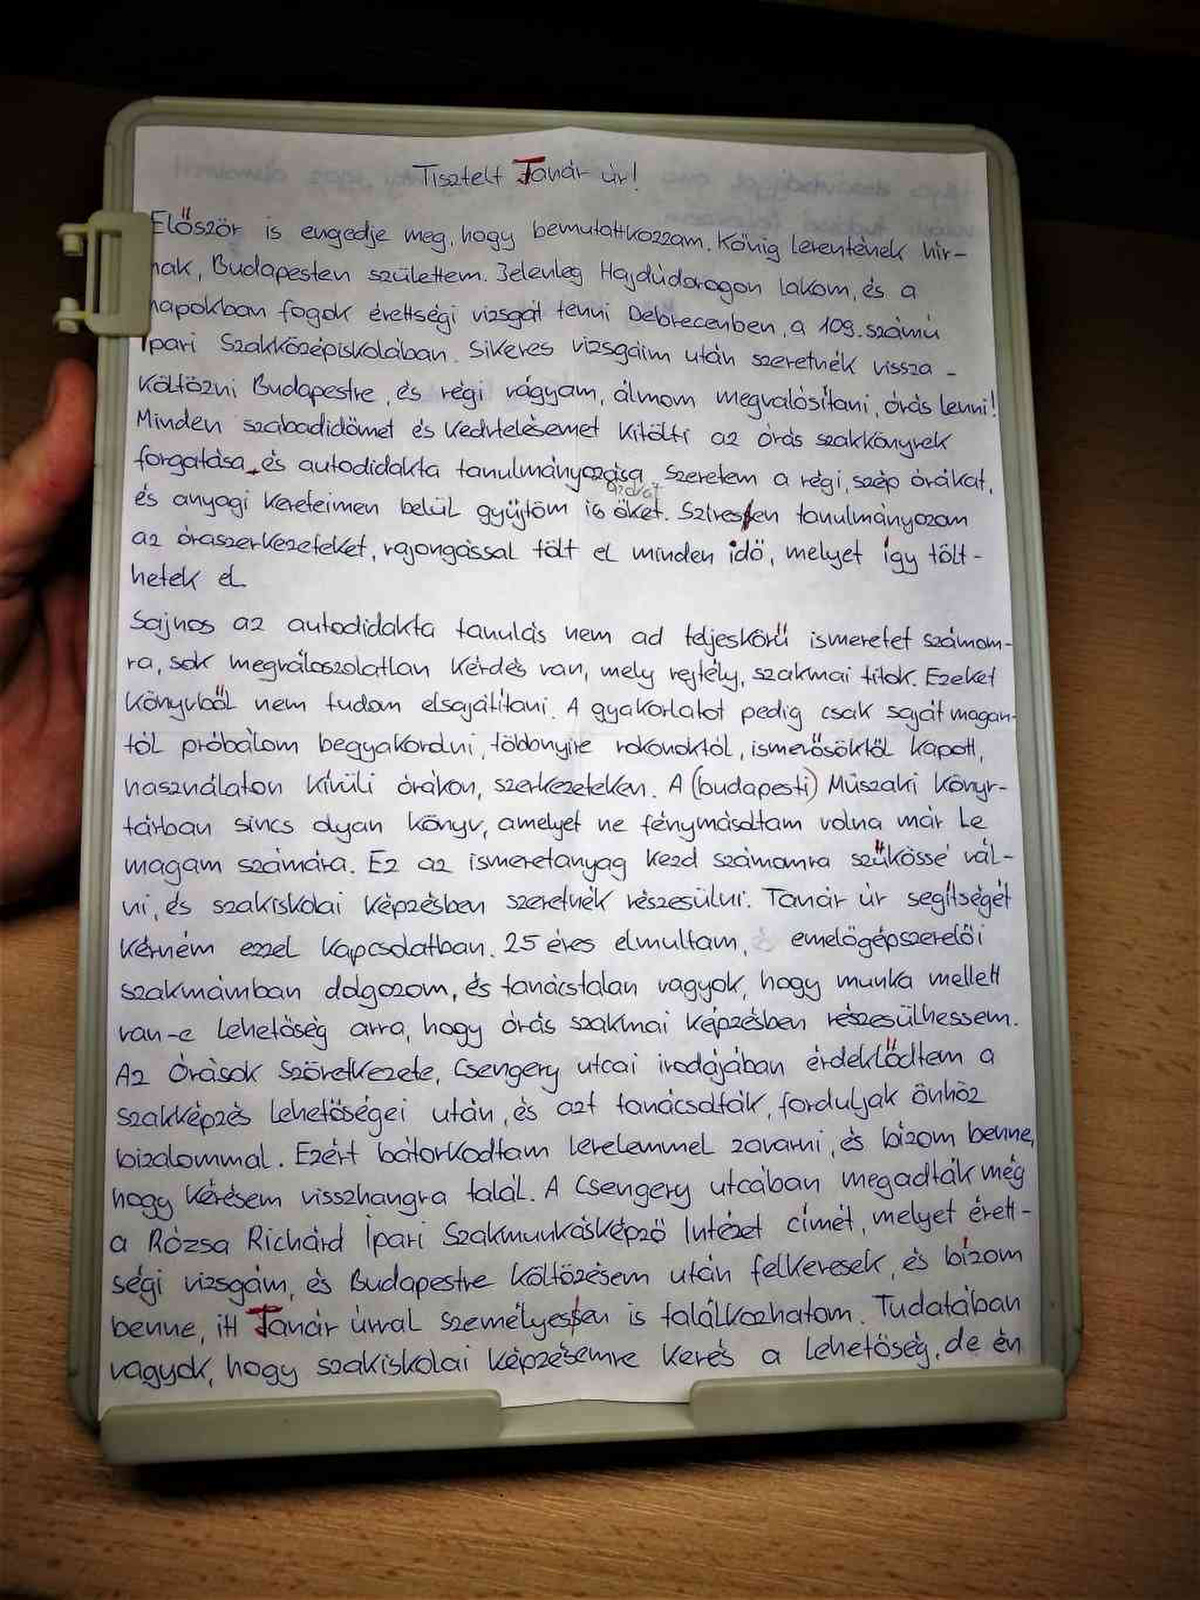 Tisztelt Tanár úr!
Először is engedje meg, hogy bemutatkozzam. Kőnig Lerentének hív-
nak, Budapesten születtem. Jelenleg Hajdúdorogon lakom, és a
napokban fogok érettségi vizsgát tenni Debrecenben, a 109. számú
Ipari Szakközépiskolában. Sikeres vizsgáim után szeretnék vissza-
költözni Budapestre, és régi vágyam, álmom megvalósítani, órás lenni!
Minden szabadidőmet és kedvtelésemet kitölti az órás szakkönyvek
forgatása, és autodidakta tanulmányozása. Szeretem a régi, szép órákat,
és anyagi kereteimen belül gyűjtöm is őket. Szívesen tanulmányozom
az óraszerkezeteket, rajongással tölt el minden idő, melyet így tölt-
hetek el.
Sajnos az autodidakta tanulás nem ad teljeskörű ismeretet számom-
ra, sok megválaszolatlan kérdés van, mely rejtély, szakmai titok. Ezeket
könyvből nem tudom elsajátítani. A gyakorlatot pedig csak saját magam-
tól próbálom begyakorolni, többnyire rokonoktól, ismerősöktől kapott,
használaton kívüli órákon, szerkezeteken. A (budapesti) Műszaki Könyv-
tárban sincs olyan könyv, amelyet ne fénymásoltam volna már le
magam számára. Ez az ismeretanyag kezd számomra szűkössé vál-
ni, és szakiskolai képzésben szeretnék részesülni. Tanár úr segítségét
kérném ezzel kapcsolatban. 25 éves elmultam, emelőgépszerelői
szakmámban dolgozom, és tanácstalan vagyok, hogy munka mellett
van-e lehetőség arra, hogy órás szakmai képzésben részesülhessem.
Az Órások Szövetkezete, Csengery utcai irodájában érdeklődtem a
szakképzés lehetőségei után, és azt tanácsolták, forduljak önhöz
bizalommal. Ezért bátorkodtam levelemmel zavarni, és bízom benne,
hogy kérésem visszhangra talál. A Csengery utcában megadták még
a Rózsa Richárd Ipari Szakmunkásképző Intézet címét, melyet érett-
ségi vizsgám, és Budapestre költözésem után felkeresek, és bízom
benne, itt Tanár úrral személyesen is találkozhatom. Tudatában
vagyok, hogy szakiskolai képzésemre kevés a lehetőség, de én